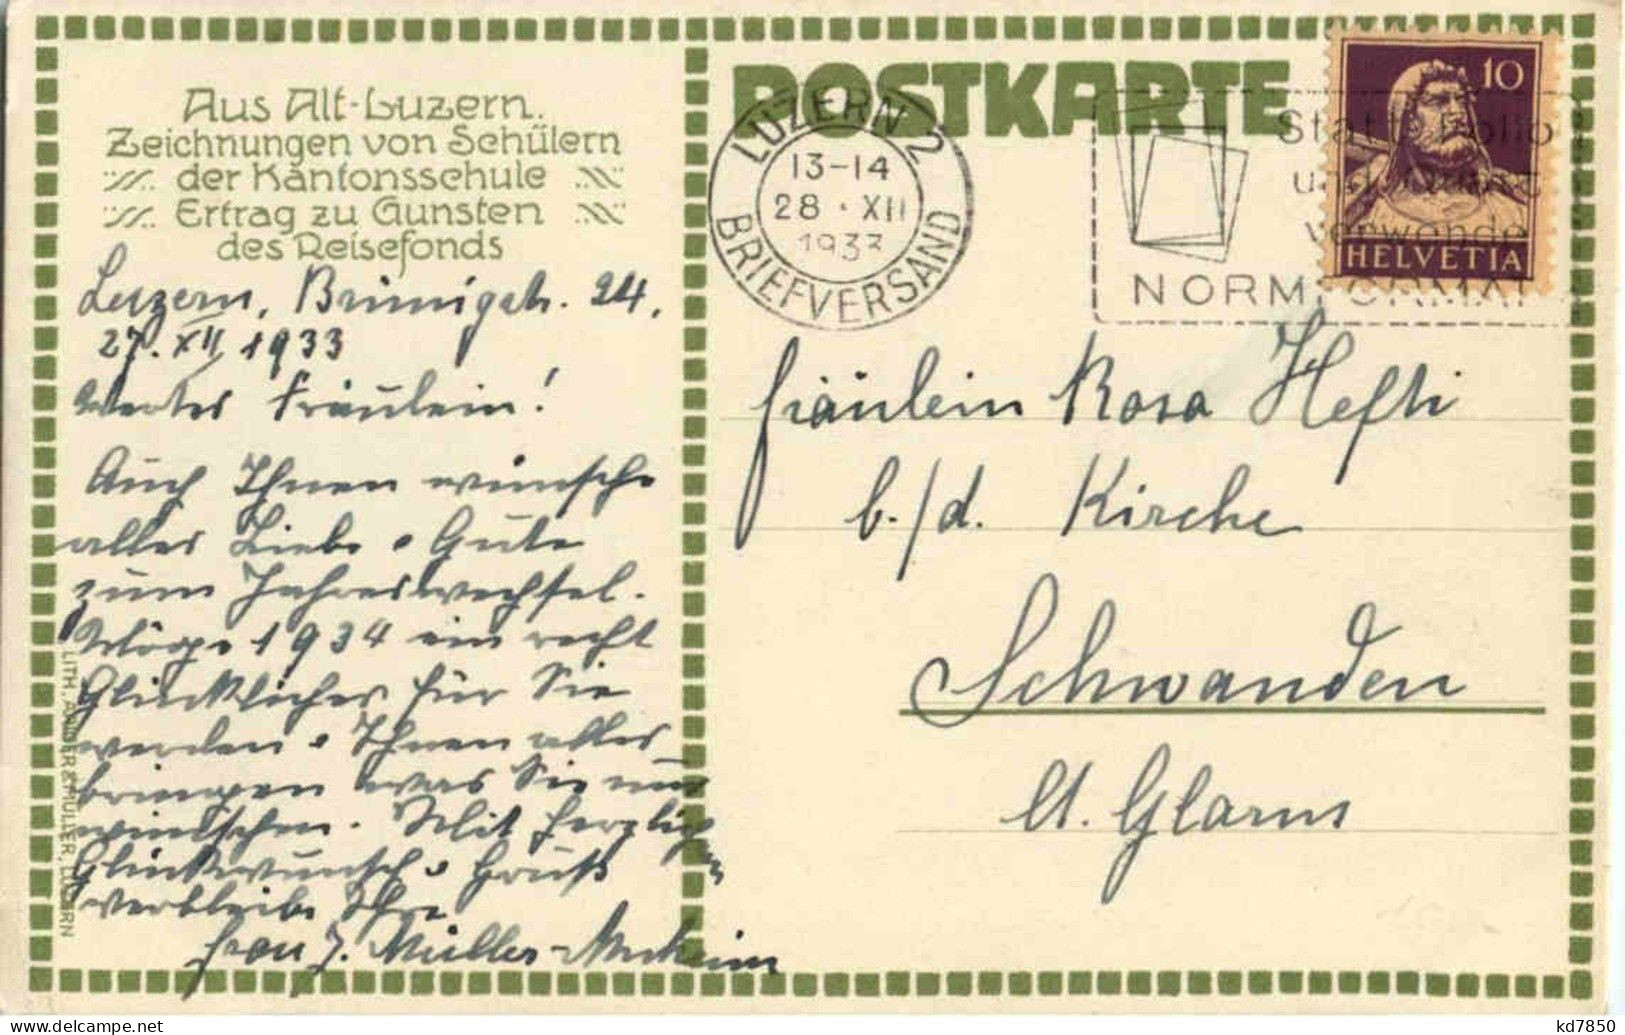 Aus Alt-Luzern.
Zeichnungen von Schülern
der Kantonsschule
Ertrag zu Gunsten
des Reisefonds
Luzern, Brünigstr. 24,
27. XII 1933
Wertes Fräulein!
Auch Ihnen wünsche
alles Liebe & Gute
zum Jahreswechsel.
Möge 1934 ein recht
Glückliches für Sie
werden & Ihnen alles
bringen was Sie nur
wünschen. Mit herzlichem
Glückwunsch & Gruß
verbleibe Ihre
Frau J. Müller-
LITH. MÜLLER, LUZERN
POSTKARTE
LUZERN 2
13-14
28.XII
1933
BRIEFVERSAND
Statt Folio
und Quart
verwende
NORMFORMAT
10
HELVETIA
Fräulein Rosa Hefti
b./d. Kirche
Schwanden
Ct. Glarus
kd7850